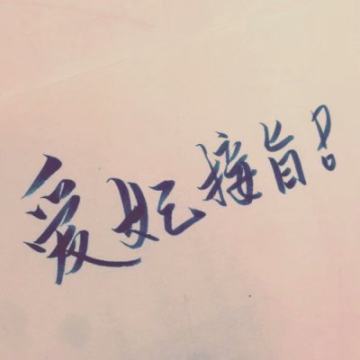 爱妃接旨!